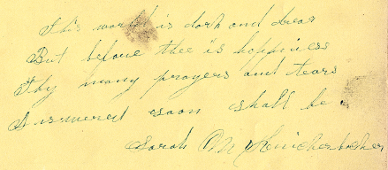 This world is dark and drear
But before thee is happiness
Thy many prayers and tears
Answered soon shall be
Sarah M Knickerbocker